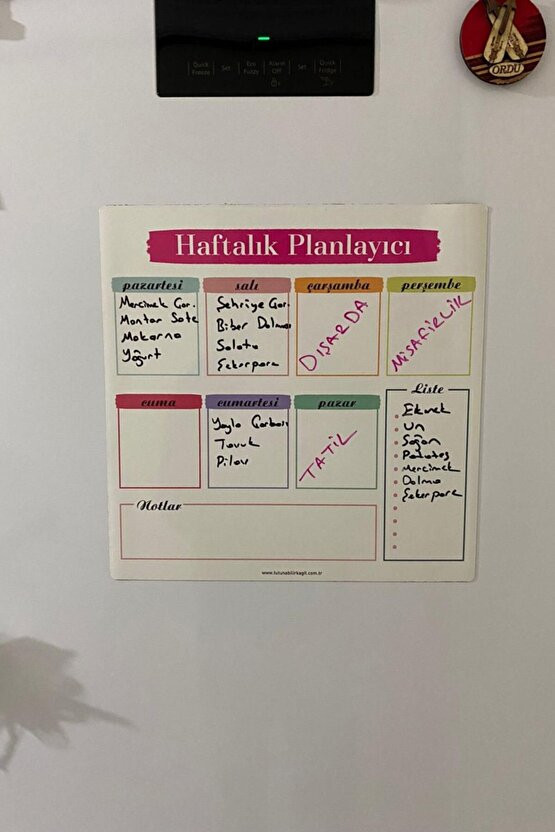 Quick Freeze Set Eco Fuzzy Alarm Off Set Quick Fridge
ORDU
Haftalık Planlayıcı
pazartesi
Mercimek Çor.
Mantar Sote
Makarna
Yoğurt
salı
Şehriye Çor.
Biber Dolması
Salata
Şekerpare
çarşamba
DIŞARDA
perşembe
MİSAFİRLİK
cuma
cumartesi
Yayla Çorbası
Tavuk
Pilav
pazar
TATİL
Liste
Ekmek
Un
Soğan
Patates
Mercimek
Dolma
Şekerpare
Notlar
www.tutunabilirkagit.com.tr